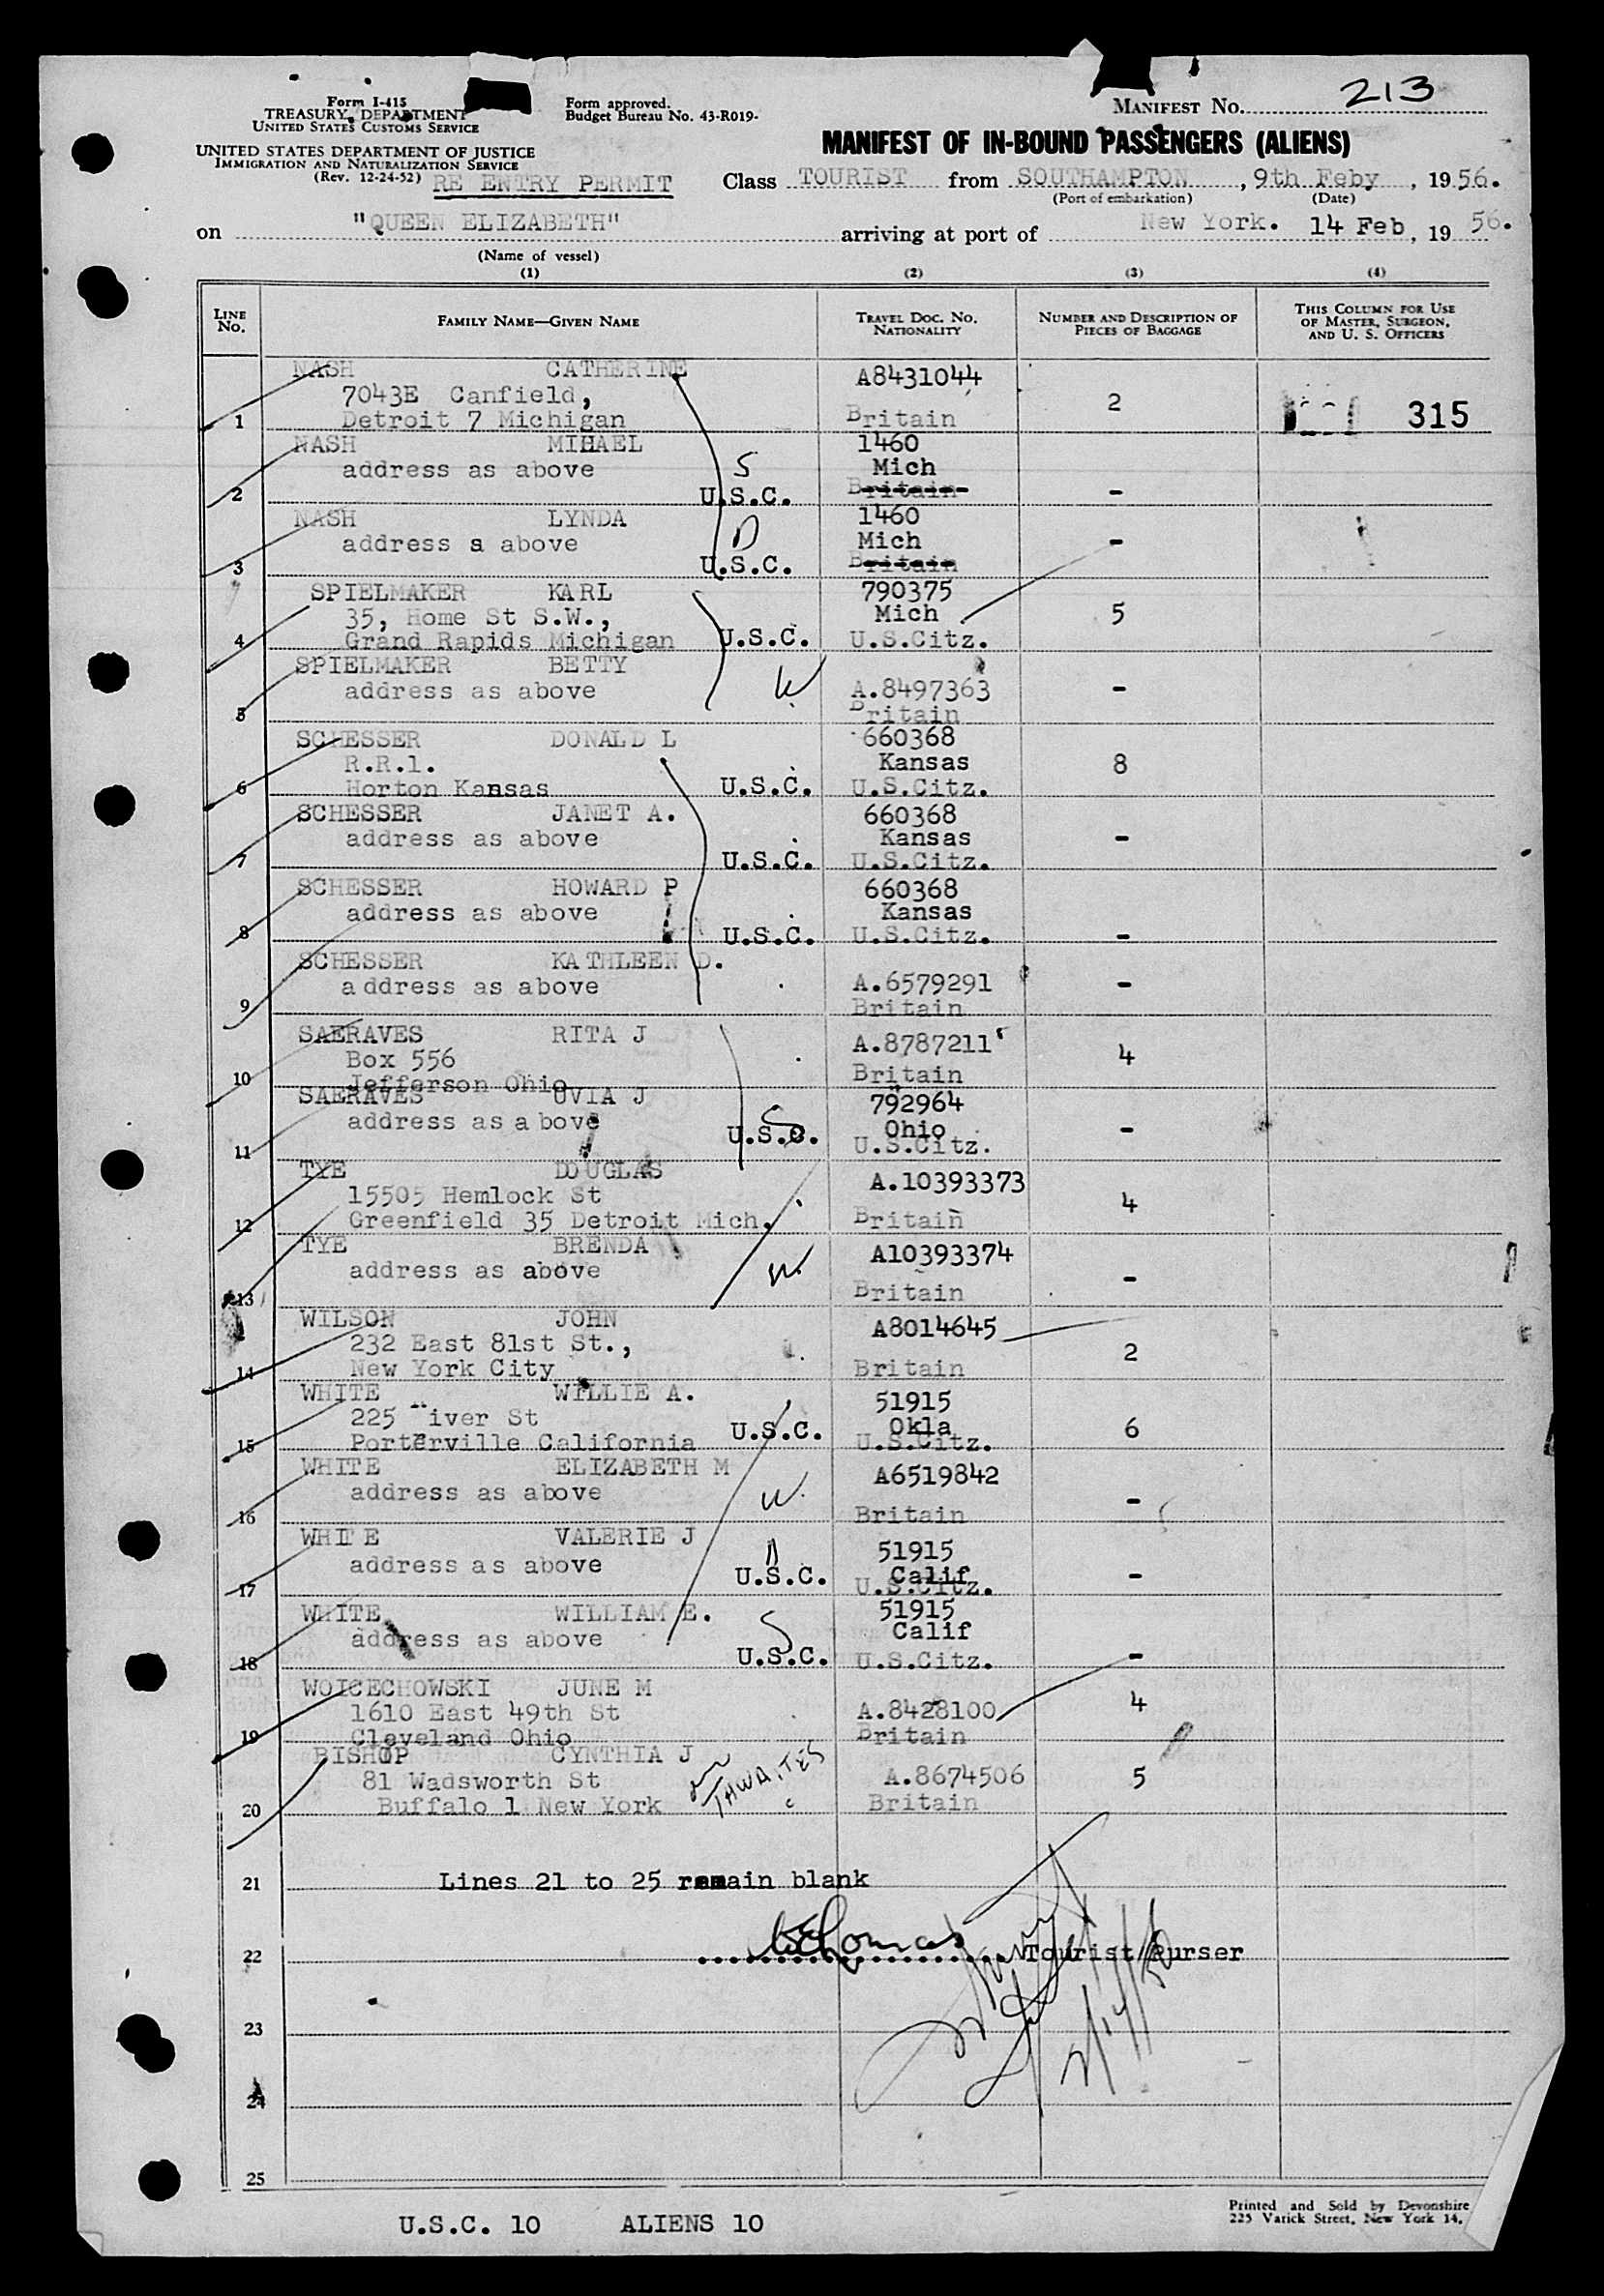 213
Form I-415
TREASURY DEPARTMENT
UNITED STATES CUSTOMS SERVICE
Form approved.
Budget Bureau No. 43-R019-
MANIFEST No.
UNITED STATES DEPARTMENT OF JUSTICE
IMMIGRATION AND NATURALIZATION SERVICE
(Rev. 12-24-52) RE ENTRY PERMIT
MANIFEST OF IN-BOUND PASSENGERS (ALIENS)
Class TOURIST from SOUTHAMPTON, 9th Feby, 1956.
(Port of embarkation) (Date)
on "QUEEN ELIZABETH" arriving at port of New York. 14 Feb, 19 56.
(Name of vessel)
(1) (2) (3) (4)
LINE No. FAMILY NAME—GIVEN NAME TRAVEL DOC. NO. NATIONALITY NUMBER AND DESCRIPTION OF PIECES OF BAGGAGE THIS COLUMN FOR USE OF MASTER, SURGEON, AND U. S. OFFICERS
NASH CATHERINE A8431044
7043E Canfield, 2
1 Detroit 7 Michigan Britain 315
NASH MIHAEL 1460
address as above S Mich
2 U.S.C. Britain -
NASH LYNDA 1460
address a above D Mich -
3 U.S.C. Britain
SPIELMAKER KARL 790375
35, Home St S.W., Mich 5
4 Grand Rapids Michigan U.S.C. U.S.Citz.
SPIELMAKER BETTY
address as above W A.8497363 -
5 Britain
SCHESSER DONALD L 660368
R.R.1. Kansas 8
6 Horton Kansas U.S.C. U.S.Citz.
SCHESSER JANET A. 660368
address as above Kansas -
7 U.S.C. U.S.Citz.
SCHESSER HOWARD P 660368
address as above Kansas
8 U.S.C. U.S.Citz. -
SCHESSER KATHLEEN D.
address as above A.6579291 -
9 Britain
SAERAVES RITA J A.8787211
Box 556 4
10 Jefferson Ohio Britain
SAERAVES UVIA J 792964
address as above S Ohio -
11 U.S.C. U.S.Citz.
TYE DOUGLAS A.10393373
15505 Hemlock St 4
12 Greenfield 35 Detroit Mich. Britain
TYE BRENDA A10393374
address as above W. -
13 Britain
WILSON JOHN A8014645
232 East 81st St., 2
14 New York City Britain
WHITE WILLIE A. 51915
225 iver St Okla 6
15 Porterville California U.S.C. U.S.Citz.
WHITE ELIZABETH M A6519842
address as above W. -
16 Britain
WHITE VALERIE J 51915
address as above D Calif -
17 U.S.C. U.S.Citz.
WHITE WILLIAM E. 51915
address as above S Calif
18 U.S.C. U.S.Citz. -
WOICECHOWSKI JUNE M
1610 East 49th St A.8428100 4
19 Cleveland Ohio Britain
BISHOP CYNTHIA J THWAITES
81 Wadsworth St A.8674506 5
20 Buffalo 1 New York Britain
21 Lines 21 to 25 remain blank
22 Tourist Purser
2/14/56
23
24
25
U.S.C. 10 ALIENS 10
Printed and Sold by Devonshire
225 Varick Street, New York 14.